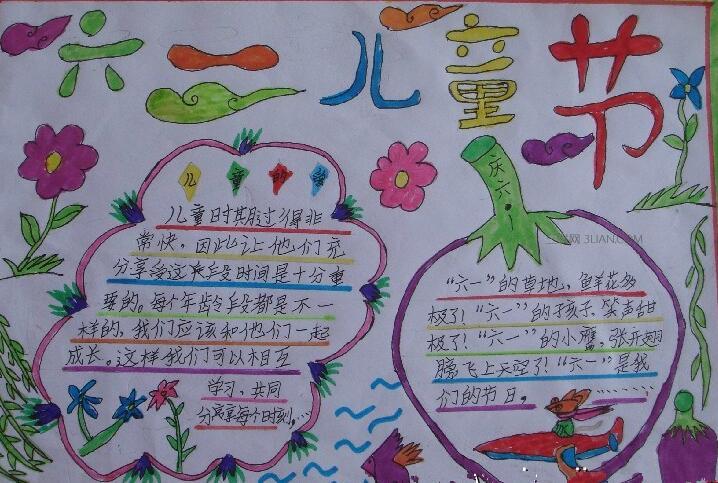 六一儿童节
儿童时期过得非
常快，因此让他们充
分享受这段时间是十分重
要的。每个年龄段都是不一
样的，我们应该和他们一起
成长。这样我们可以相互
学习，共同
分享每个时刻。…
庆六一
3LIAN.COM
“六一”的草地，鲜花多
极了！“六一”的孩子，笑声甜
极了！“六一”的小鹰，张开翅
膀飞上天空了！“六一”是我
们的节日。